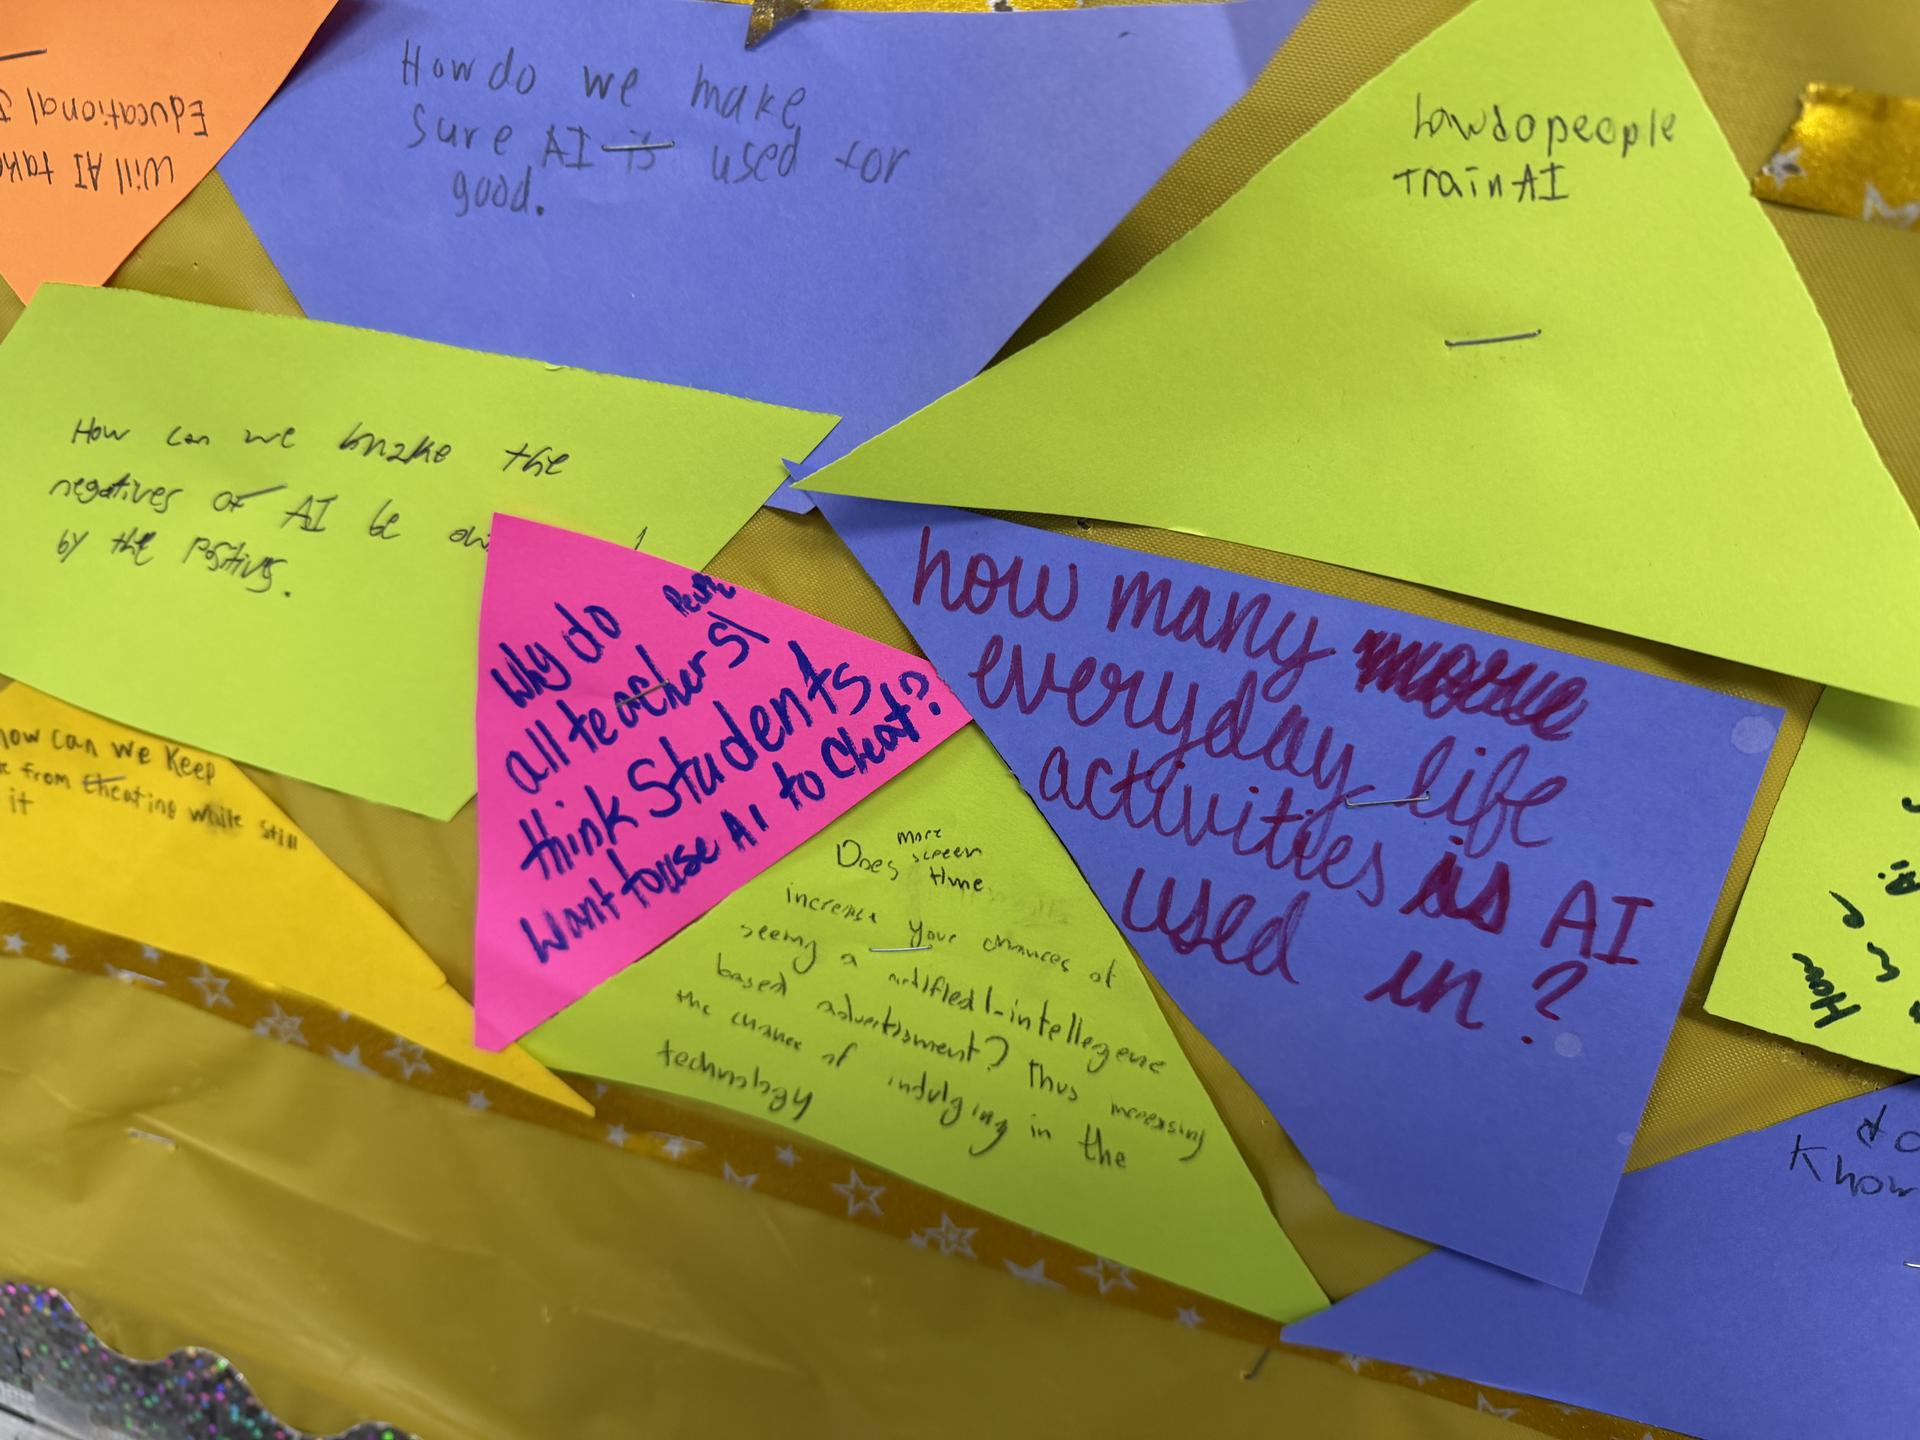 Will AI take
Educational
How do we make
sure AI is used for
good.
how do people
train AI
How can we make the
negatives of AI be
by the positives.
Why do
all teachers/
think Students
want to use AI to cheat?
how many
everyday life
activities is AI
used in?
how can we keep
from cheating while still
it
more
Does screen
time
increase your chances of
seeing a
based advertisment? Thus increasing
the chance of indulging in the
technology
How
do
Know